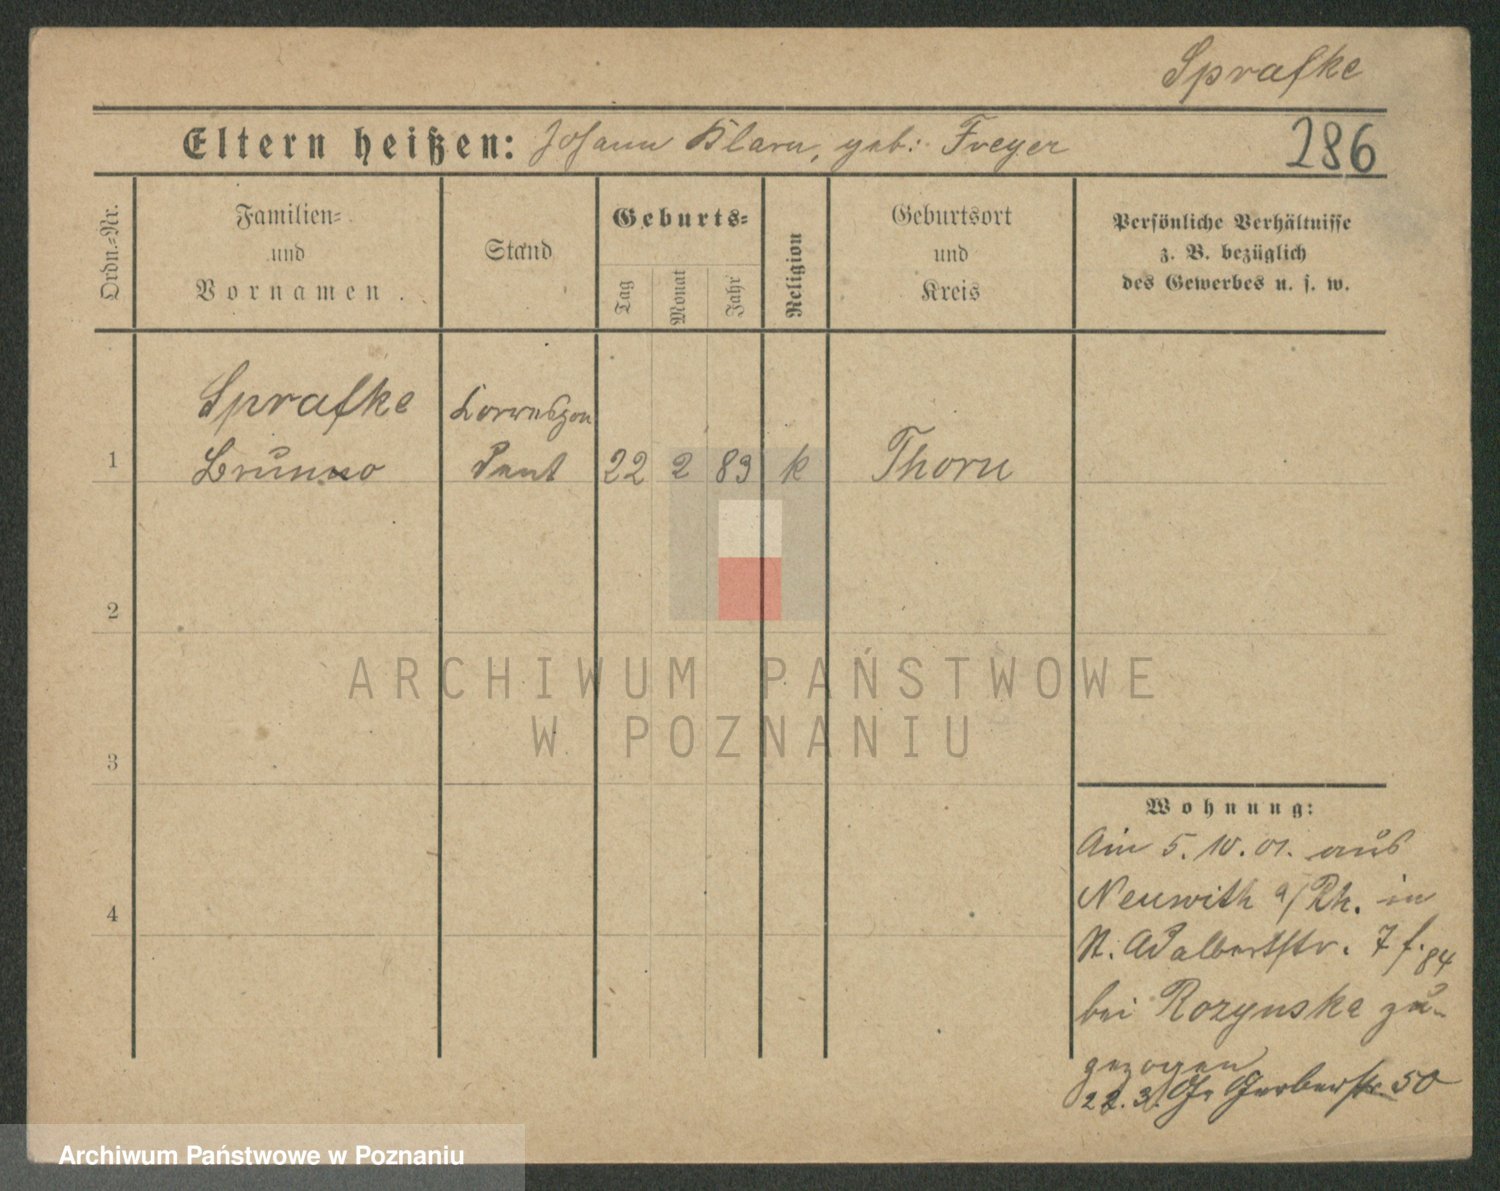 Sprafke
Eltern heißen: Johann Klara, geb: Freyer
286
Ordn.-Nr.
Familien-
und
Vornamen
Stand
Geburts-
Tag
Monat
Jahr
Religion
Geburtsort
und
Kreis
Persönliche Verhältnisse
z. B. bezüglich
des Gewerbes u. s. w.
Sprafke
1 Brunno 22 2 83 k Thorn
2
ARCHIWUM PAŃSTWOWE
W POZNANIU
3
Wohnung:
Am 5. 10. 01. aus
Neuwith a/Rh. in
4
St. Adalbertstr. 7 f. 84
bei Rozynske zu-
gezogen
22. 3. Gr Gerberstr 50
Archiwum Państwowe w Poznaniu